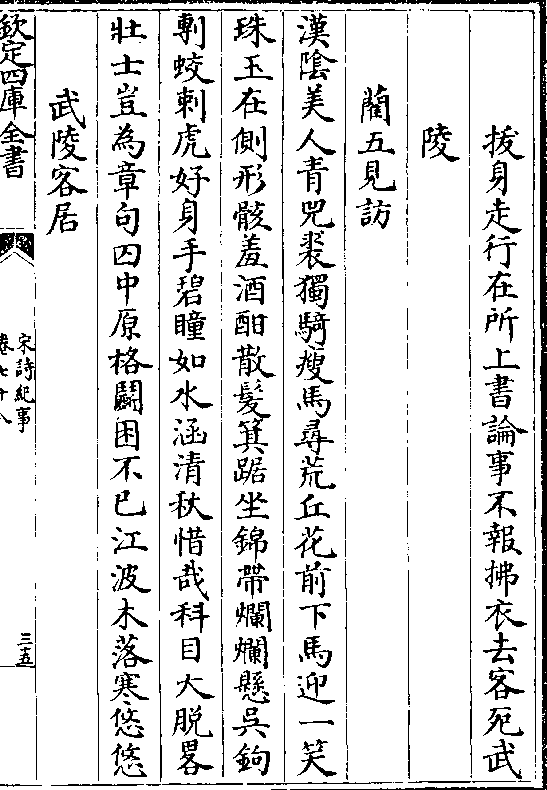 拔身走行在所上書論事不報拂衣去客死武
陵
藺五見訪
漢陰美人青兕裘獨騎瘦馬尋荒丘花前下馬迎一笑
珠玉在側形骸羞酒酣散髮箕踞坐錦帶爛爛懸吳鉤
剸蛟刺虎好身手碧瞳如水涵清秋惜哉科目大脱畧
壯士豈為章句囚中原格鬬困不已江波木落寒悠悠
武陵客居
欽定四庫全書
宋詩紀事
卷七十八
三五